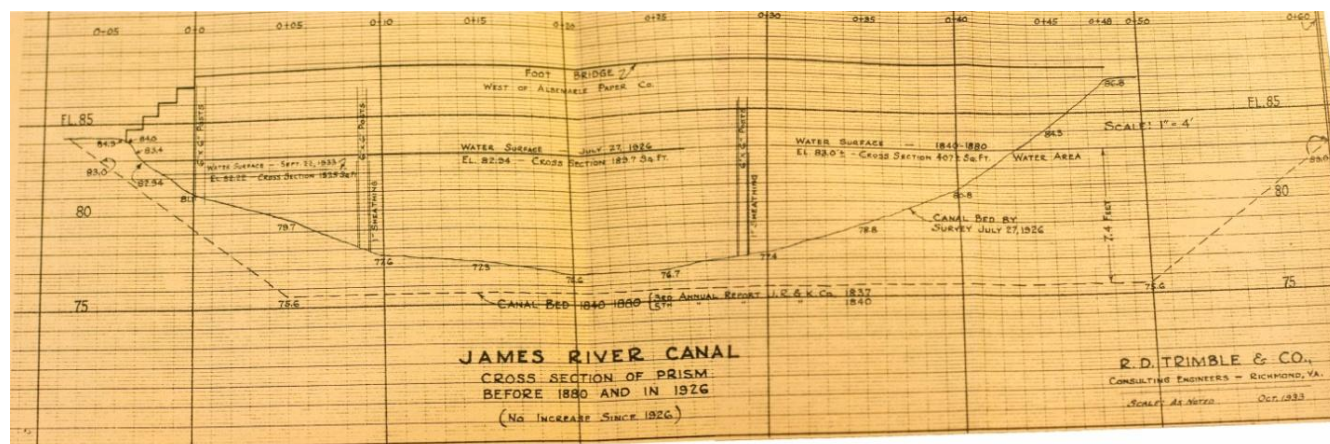 0+05 0+0 0+05 0+10 0+15 0+20 0+25 0+30 0+35 0+40 0+45 0+48 0+50 0+60
FOOT BRIDGE
WEST OF ALBEMARLE PAPER CO.
86.8
EL. 85
EL. 85
84.9 84.8
83.4
83.0
82.94
6" x 6" POSTS
6" x 6" POSTS
6" x 6" POSTS
1" SHEATHING
1" SHEATHING
WATER SURFACE — SEPT. 22, 1933
EL. 82.22 — CROSS SECTION
WATER SURFACE JULY 27, 1926
EL. 82.94 — CROSS SECTION 189.7 SQ. FT.
WATER SURFACE — 1840-1880
EL. 83.0± - CROSS SECTION 407± SQ. FT.
WATER AREA
84.3
SCALE: 1" = 4'
83.0
80
80
79.7
77.6
76.7
77.4
78.8
80.8
CANAL BED BY
SURVEY JULY 27, 1926
7.4 FEET
75
75
75.6
75.6
CANAL BED 1840-1880
3RD ANNUAL REPORT J. R. & K. CO. 1837
5TH " " " 1840
JAMES RIVER CANAL
CROSS SECTION OF PRISM
BEFORE 1880 AND IN 1926
(NO INCREASE SINCE 1926)
R. D. TRIMBLE & CO.,
CONSULTING ENGINEERS — RICHMOND, VA.
SCALE: AS NOTED OCT. 1933